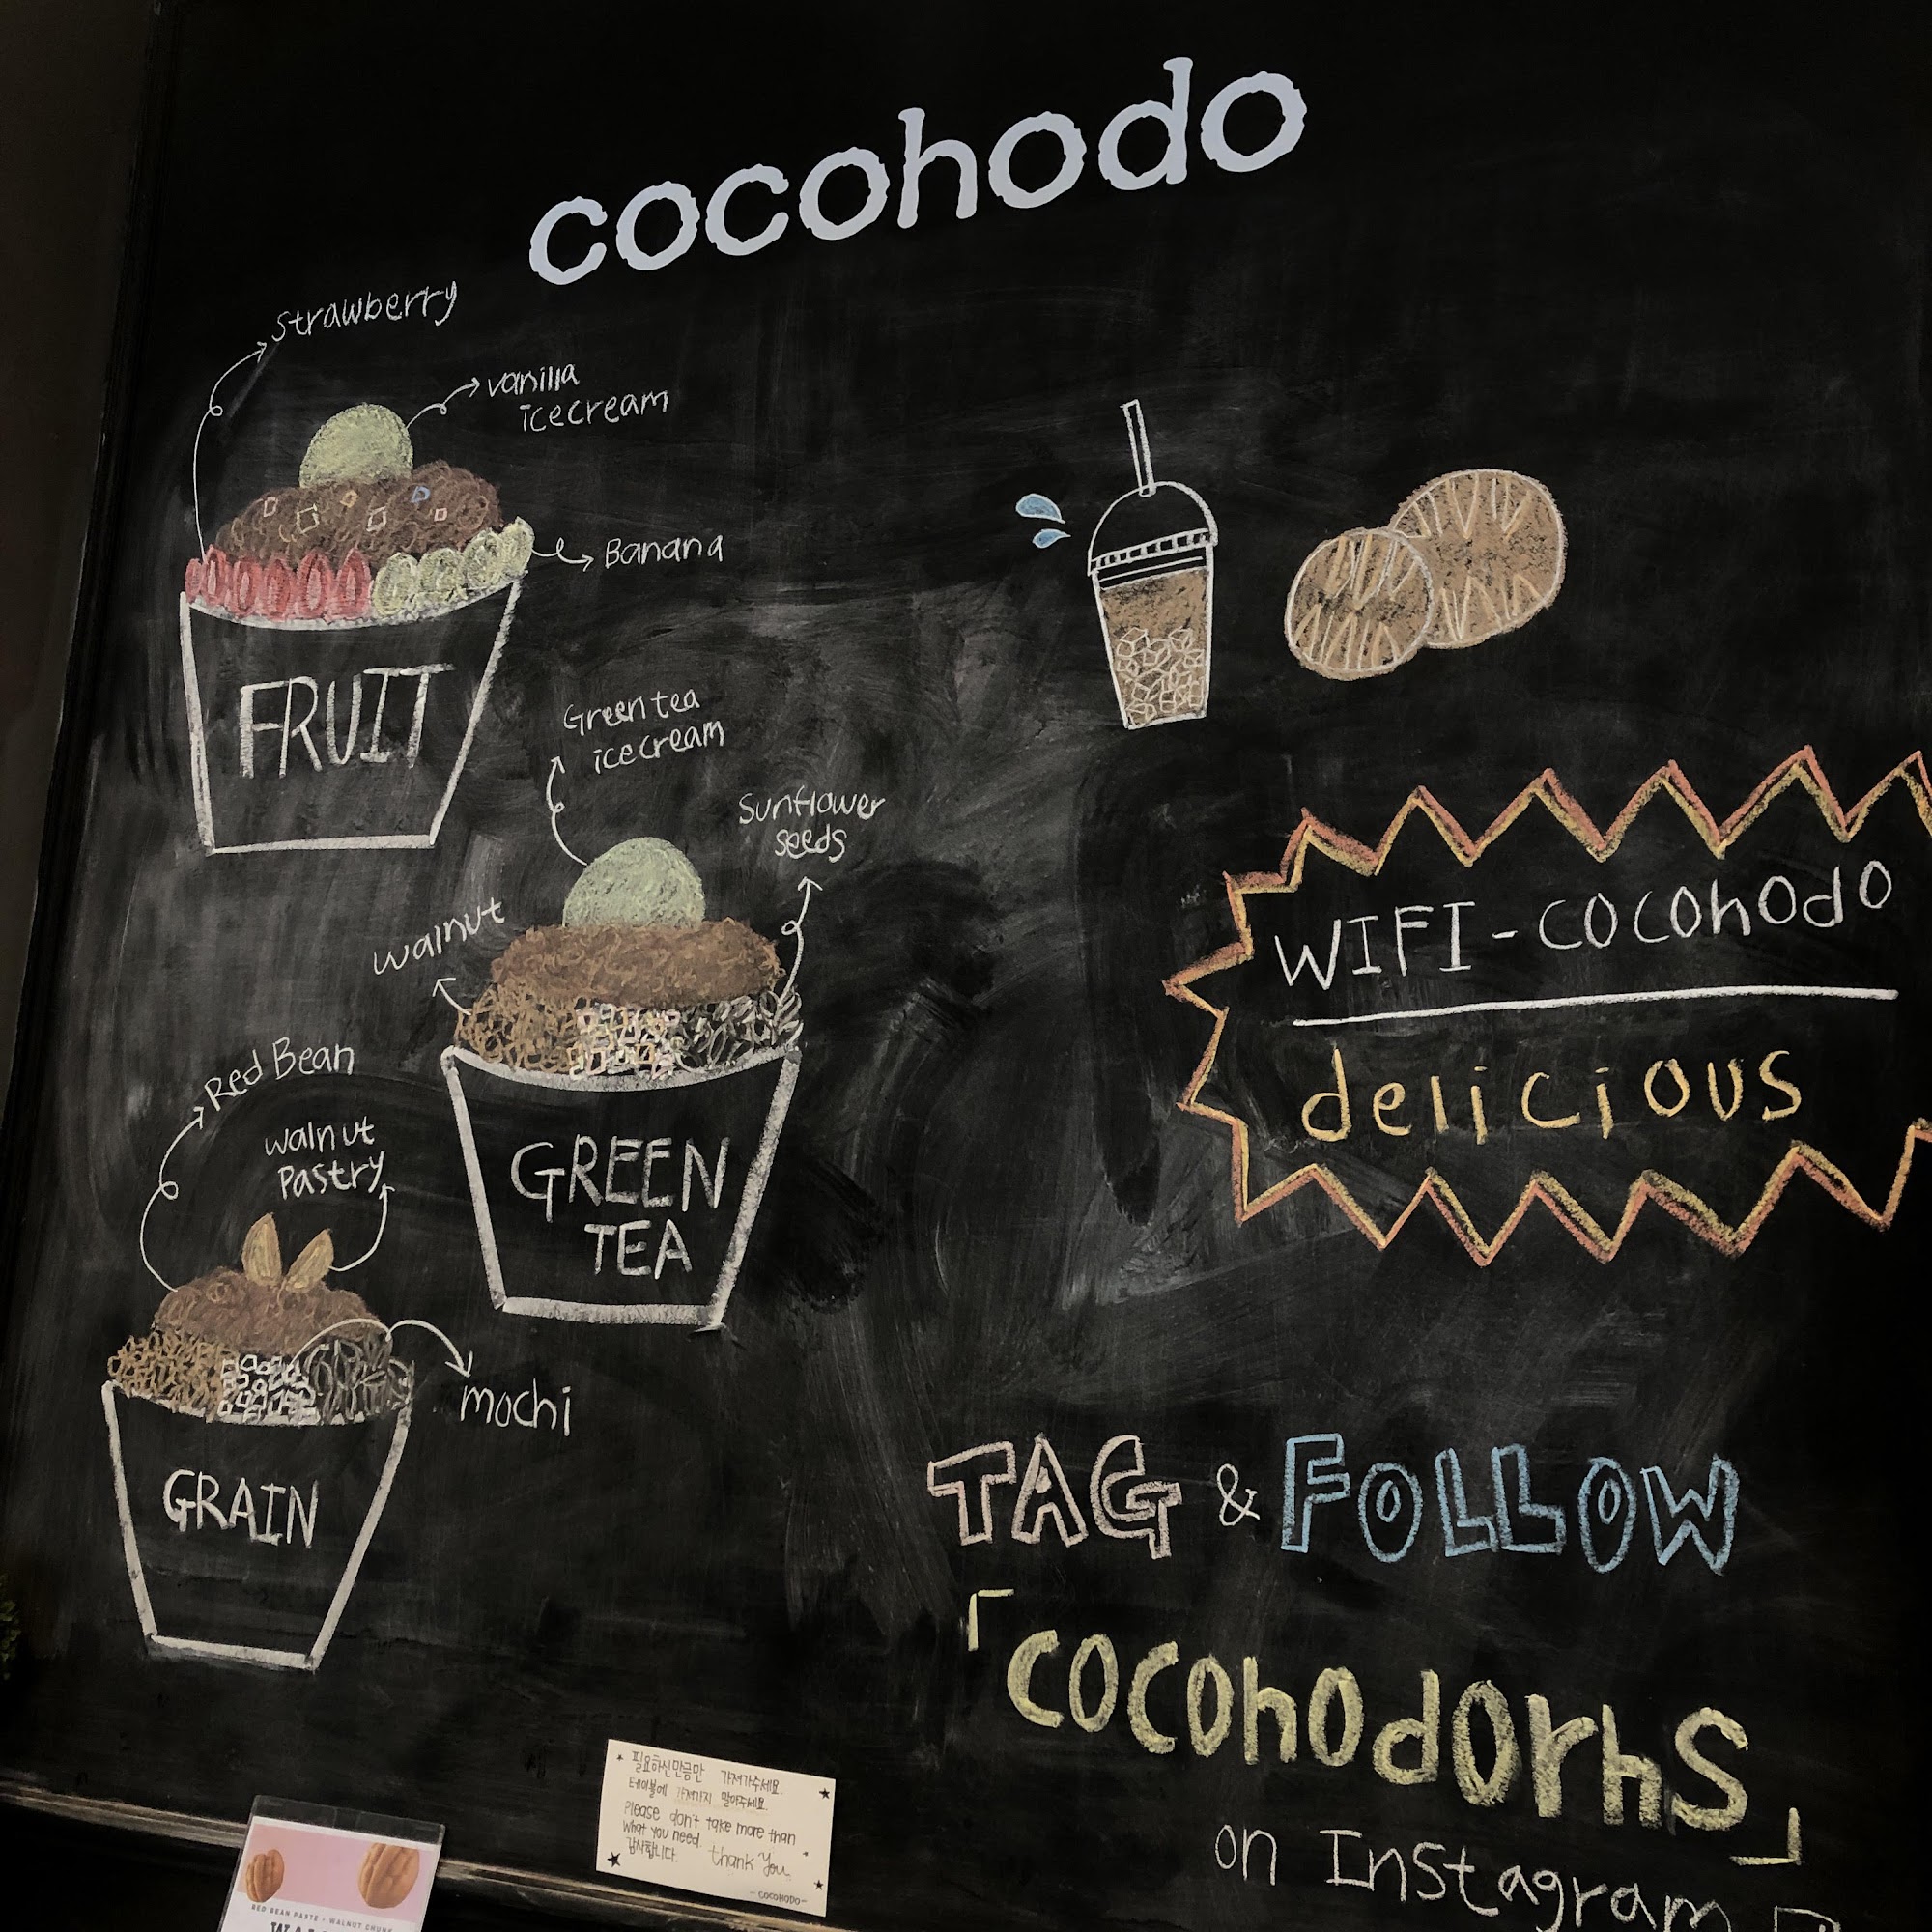 cocohodo
strawberry
vanilla
icecream
Banana
FRUIT
Green tea
icecream
Sunflower
seeds
walnut
GREEN
TEA
Red Bean
walnut
Pastry
mochi
GRAIN
WIFI-cocohodo
delicious
TAG & FOLLOW
「cocohodorhs」
on Instagram
필요하신만큼만 가져가주세요.
테이블에 가져가지 말아주세요.
Please don't take more than
what you need.
감사합니다. thank you
-COCOHODO-
RED BEAN PASTE + WALNUT CHUNK